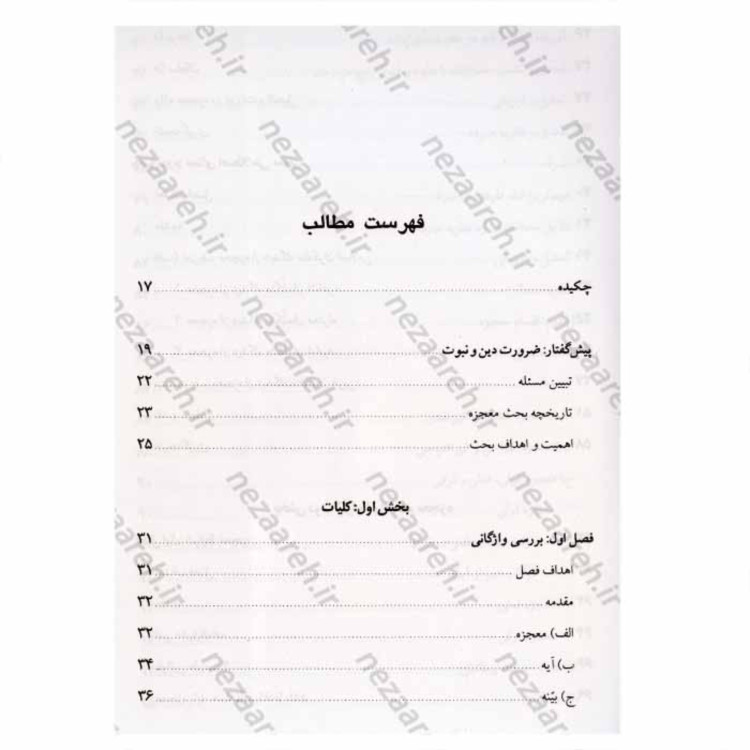 فهرست مطالب
چکیده ... ۱۷
پیش‌گفتار: ضرورت دین و نبوت ... ۱۹
تبیین مسئله ... ۲۲
تاریخچه بحث معجزه ... ۲۳
اهمیت و اهداف بحث ... ۲۵
بخش اول: کلیات
فصل اول: بررسی واژگانی ... ۳۱
اهداف فصل ... ۳۱
مقدمه ... ۳۲
الف) معجزه ... ۳۲
ب) آیه ... ۳۴
ج) بیّنه ... ۳۶
nezaareh.ir